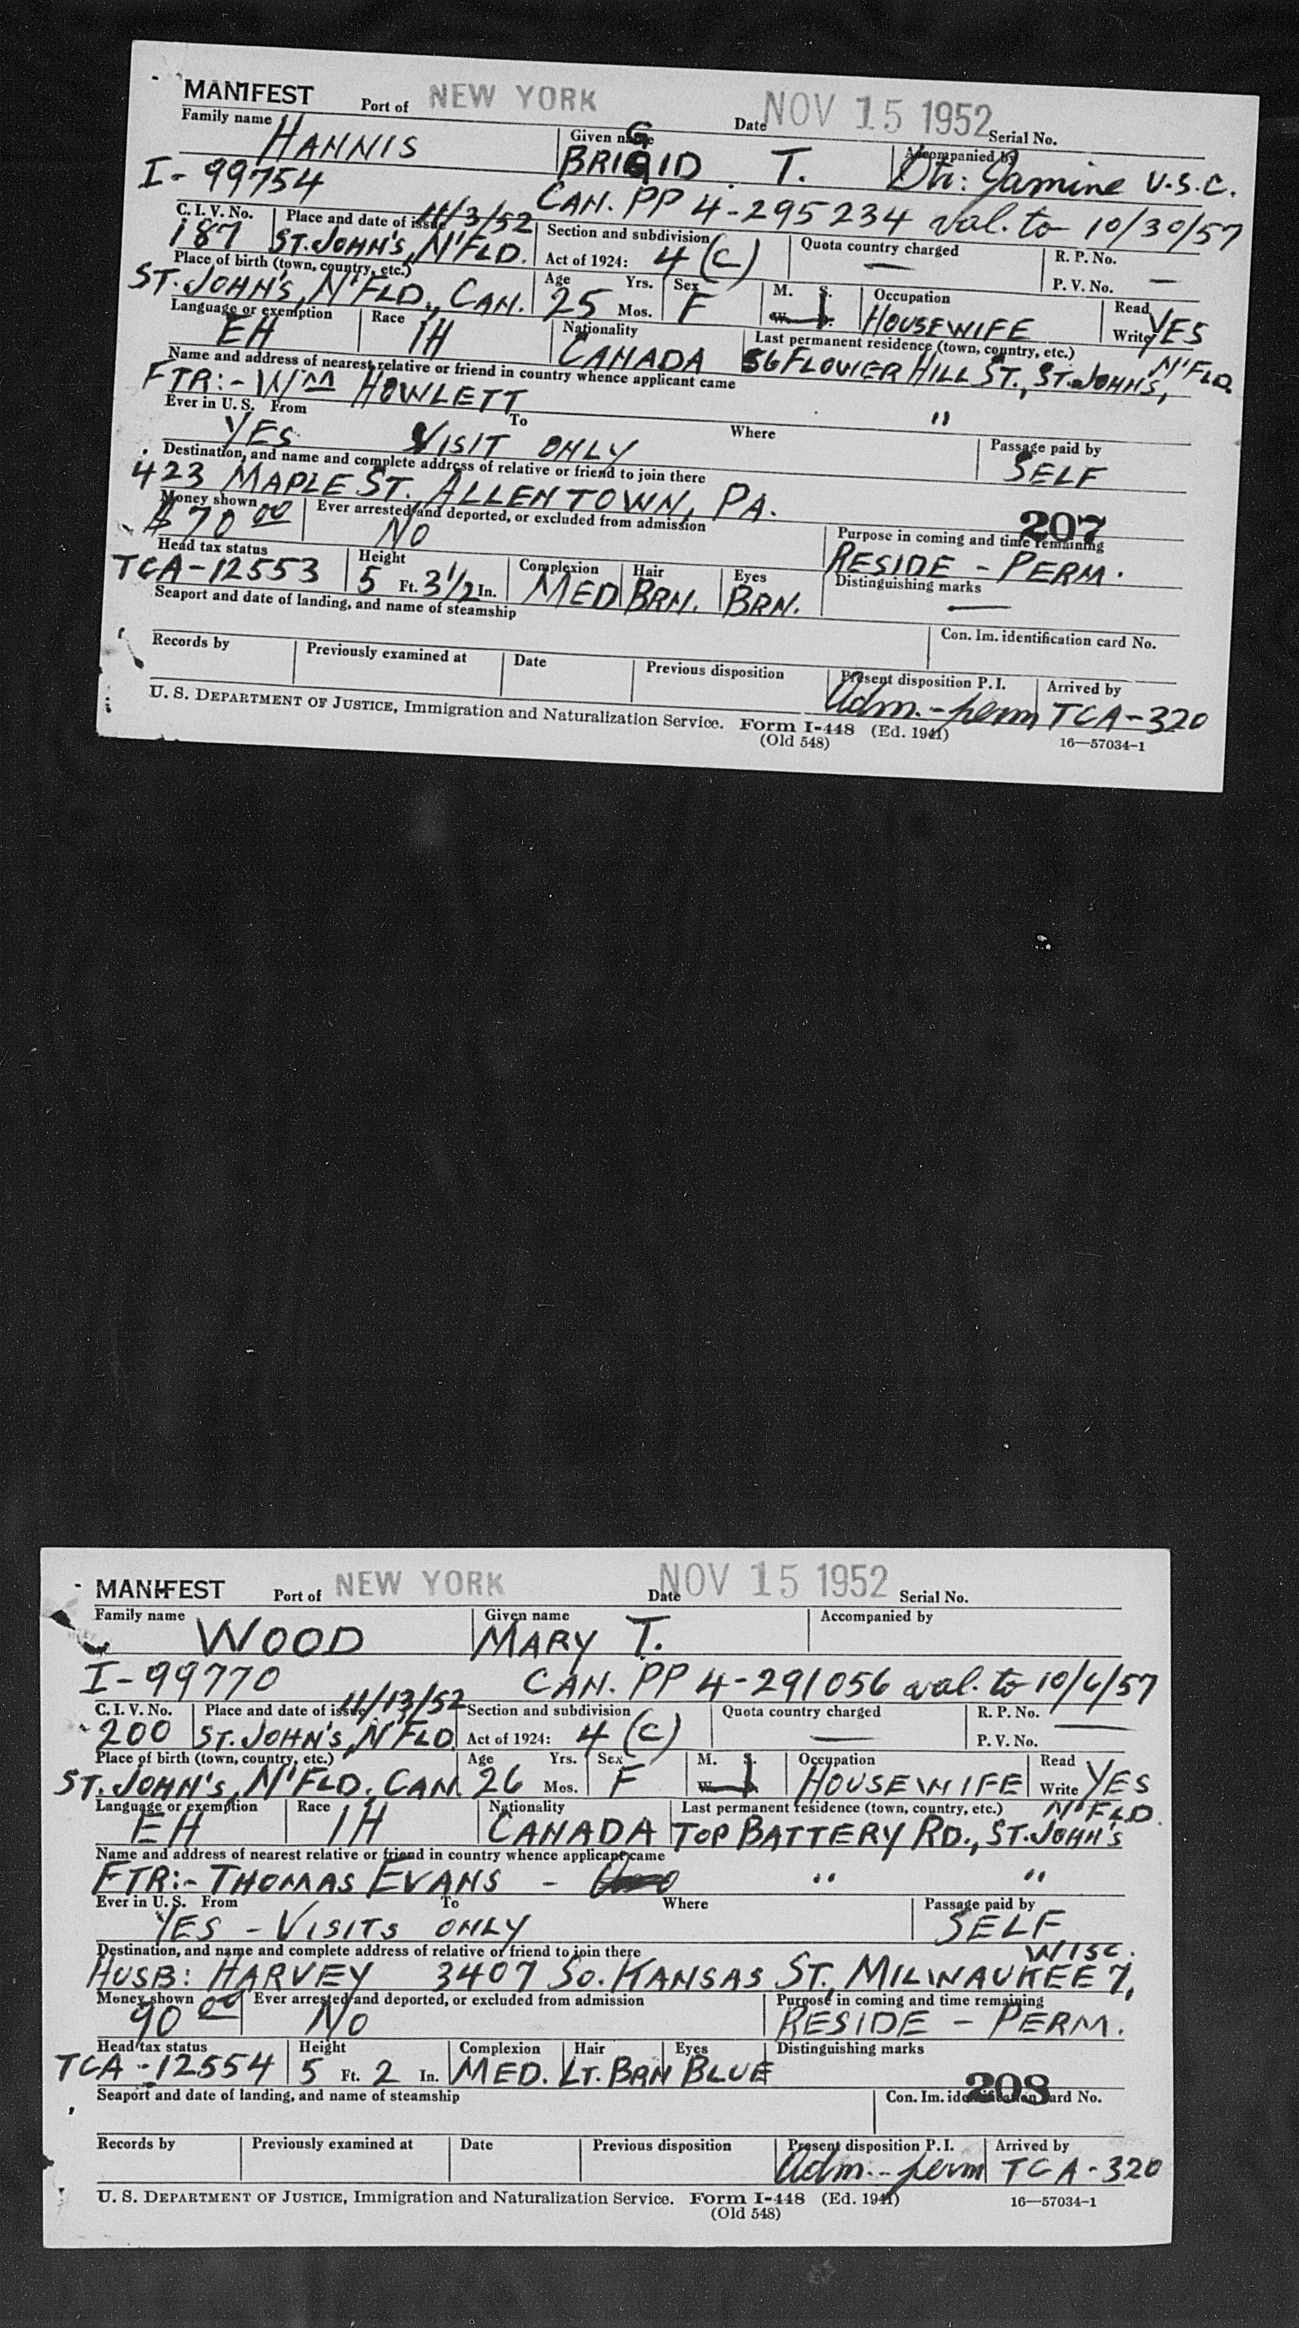 MANIFEST Port of NEW YORK Date NOV 15 1952 Serial No.
Family name HANNIS Given name BRIGID T. Accompanied by Dtr: Jamine U.S.C.
I-99754 CAN. PP 4-295234 val. to 10/30/57
C. I. V. No. 187 Place and date of issue 11/3/52 ST. JOHN'S, N'FLD. Section and subdivision Act of 1924: 4 (C) Quota country charged — R. P. No. P. V. No. —
Place of birth (town, country, etc.) ST. JOHN'S, N'FLD., CAN. Age 25 Yrs. Mos. Sex F M. S. W. D. Occupation HOUSEWIFE Read Write YES
Language or exemption EH Race IH Nationality CANADA Last permanent residence (town, country, etc.) 56 FLOWER HILL ST., ST. JOHN'S, N'FLD.
Name and address of nearest relative or friend in country whence applicant came
FTR:- WM HOWLETT "
Ever in U. S. From To Where Passage paid by
YES VISIT ONLY SELF
Destination, and name and complete address of relative or friend to join there
423 MAPLE ST. ALLENTOWN, PA.
207
Money shown $70 00 Ever arrested and deported, or excluded from admission NO Purpose in coming and time remaining RESIDE - PERM.
Head tax status TCA-12553 Height 5 Ft. 3 1/2 In. Complexion MED Hair BRN. Eyes BRN. Distinguishing marks —
Seaport and date of landing, and name of steamship Con. Im. identification card No.
Records by Previously examined at Date Previous disposition Present disposition P. I. Adm. - perm Arrived by TCA-320
U. S. DEPARTMENT OF JUSTICE, Immigration and Naturalization Service. Form I-448 (Ed. 1941) 16—57034-1
(Old 548)
MANIFEST Port of NEW YORK Date NOV 15 1952 Serial No.
Family name WOOD Given name MARY T. Accompanied by
I-99770 CAN. PP 4-291056 val. to 10/6/57
C. I. V. No. 200 Place and date of issue 11/13/52 ST. JOHN'S, N'FLD Section and subdivision Act of 1924: 4 (C) Quota country charged — R. P. No. — P. V. No.
Place of birth (town, country, etc.) ST. JOHN'S, N'FLD, CAN. Age 26 Yrs. Mos. Sex F M. S. W. D. Occupation HOUSEWIFE Read Write YES
Language or exemption EH Race IH Nationality CANADA Last permanent residence (town, country, etc.) TOP BATTERY RD., ST. JOHN'S N'FLD.
Name and address of nearest relative or friend in country whence applicant came
FTR:- THOMAS EVANS - " "
Ever in U. S. From To Where Passage paid by
YES - VISITS ONLY SELF
Destination, and name and complete address of relative or friend to join there
HUSB: HARVEY 3407 SO. KANSAS ST., MILWAUKEE 7, WISC.
Money shown 90 00 Ever arrested and deported, or excluded from admission NO Purpose in coming and time remaining RESIDE - PERM.
Head tax status TCA-12554 Height 5 Ft. 2 In. Complexion MED. Hair LT. BRN Eyes BLUE Distinguishing marks
208
Seaport and date of landing, and name of steamship Con. Im. identification card No.
Records by Previously examined at Date Previous disposition Present disposition P. I. Adm. - perm Arrived by TCA-320
U. S. DEPARTMENT OF JUSTICE, Immigration and Naturalization Service. Form I-448 (Ed. 1941) 16—57034-1
(Old 548)